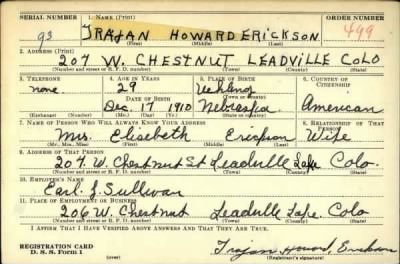 SERIAL NUMBER 1. NAME (Print) ORDER NUMBER
93 TRAJAN HOWARD ERICKSON 499
(First) (Middle) (Last)
2. ADDRESS (Print)
207 W. CHESTNUT LEADVILLE COLO
(Number and street or R. F. D. number) (Town) (County) (State)
3. TELEPHONE 4. AGE IN YEARS 5. PLACE OF BIRTH 6. COUNTRY OF CITIZENSHIP
none 29 Uehling
DATE OF BIRTH (Town or county)
Dec. 17 1910 Nebraska American
(Exchange) (Number) (Mo.) (Day) (Yr.) (State or country)
7. NAME OF PERSON WHO WILL ALWAYS KNOW YOUR ADDRESS 8. RELATIONSHIP OF THAT PERSON
Mrs. Elisebeth Erickson Wife
(Mr., Mrs., Miss) (First) (Middle) (Last)
9. ADDRESS OF THAT PERSON
207 W. Chestnut St Leadville Lake Colo.
(Number and street or R. F. D. number) (Town) (County) (State)
10. EMPLOYER'S NAME
Earl J. Sullivan
11. PLACE OF EMPLOYMENT OR BUSINESS
206 W. Chestnut Leadville Lake. Colo
(Number and street or R. F. D. number) (Town) (County) (State)
I AFFIRM THAT I HAVE VERIFIED ABOVE ANSWERS AND THAT THEY ARE TRUE.
REGISTRATION CARD
D. S. S. Form 1 (over) Trajan Howard Erickson
(Registrant's signature)